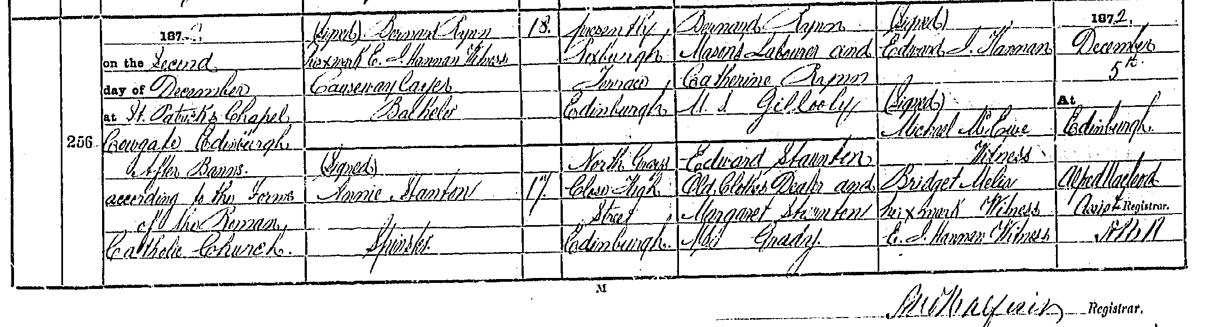 256
1872,
on the Second
day of December
at St. Patricks Chapel
Cowgate Edinburgh
After Banns.
according to the Forms
of the Roman
Catholic Church.
(Signed) Bernard Rynn
his x mark E. J. Hannan Witness
Causeway layer
Bachelor
(Signed)
Annie Stanton
Spinster
18.
17.
presently,
Roxburgh
Terrace,
Edinburgh
North Grays
Close High
Street
Edinburgh.
Bernard Rynn
Masons Labourer and
Catherine Rynn
M. S. Gillooly
Edward Staunton
Old Clothes Dealer and
Margaret Staunton
M.S. Grady.
(Signed)
Edward J. Hannan
(Signed)
Michael
Witness
Bridget
her x mark Witness
E. J. Hannan Witness
1872.
December
5th.
At
Edinburgh.
Alfred Macleod
Assist Registrar.
M
Registrar.